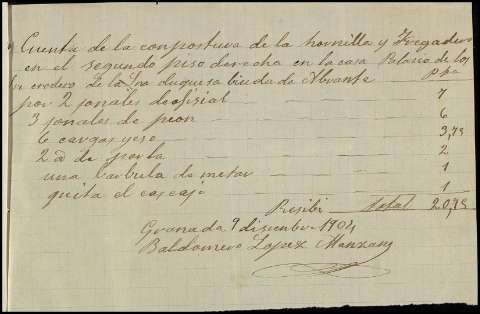 Cuenta de la conpostura de la hornilla y Fregadero
en el segundo piso derecha en la casa Palacio de los
eredero de la Sra duquesa biuda de Abrante
Pta
por 2 jonales de ofisial 7
3 jonales de peon 6
6 cargas yeso 3,75
2 @ de porla 2
una de metar 1
quita el cascajo 1
Recibi total 20,75
Granada 9 disiembre 1904
Baldomero Lopez Manzano